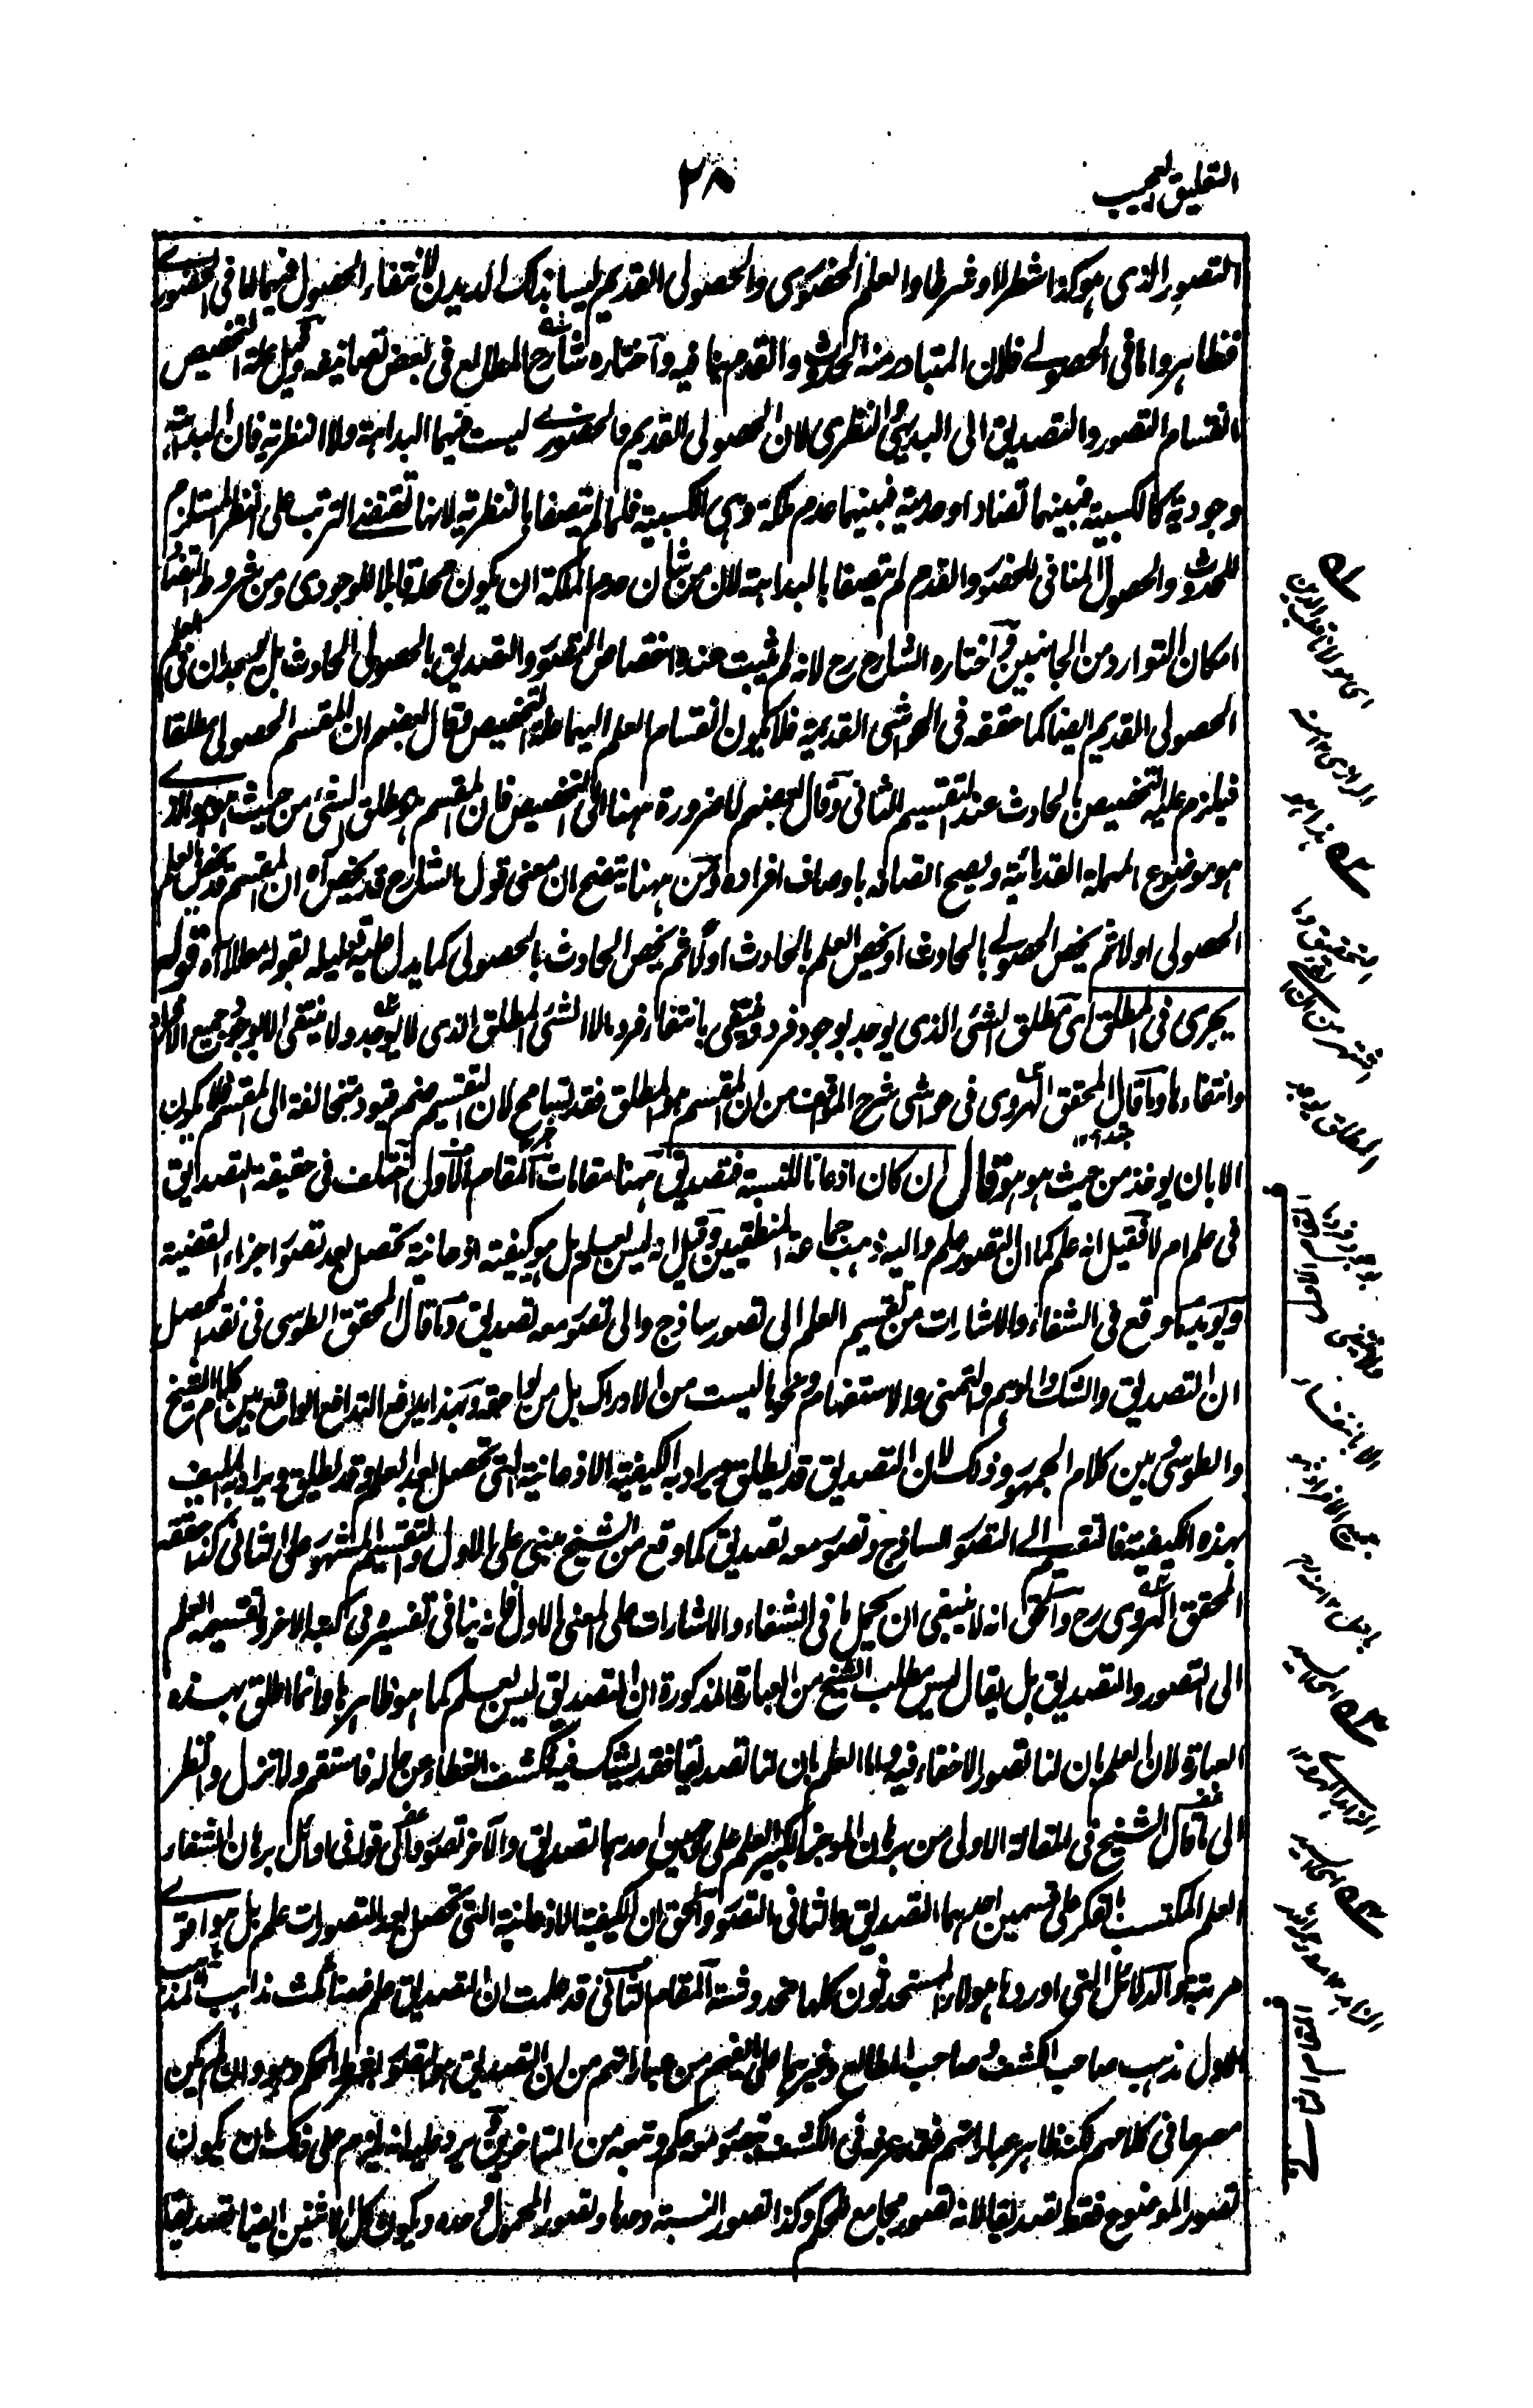 التعليق العجيب
٢٨
التصور الذى هو كذا شطر لا و شرطا و العلم الحضورى والحصولى القديم ليسا بذلك لانتفاء الحصول فيهما اما فى الحضورى
فظاهر واما فى الحصولے فلان المتبادر منه الحدوث والقدم ينافيه وآختاره شارح المطالع فى بعض تصانيفه وقيل علة التخصيص
انقسام التصور والتصديق الى البديهى والنظرى لان الحصولى القديم والحضورے ليست فيهما البداهة ولا النظرية فان البداهة
وجودية كالكسبية فبينهما تضاد او عدمية فبينهما عدم ملكة وهى الكسبية فلما لم يتصفا بالنظرية لانها تقتضے الترتب على النظر المستلزم
للحدوث والحصول المنافى للحضور والقدم لم يتصفا بالبداهة لان من شان عدم الملكة ان يكون محله قابلا للوجودى ومن شروط التضاد
امكان التوارد من الجانبين وآختاره الشارح رح لانه لم يثبت عنده اختصاص التصور والتصديق بالحصولى الحادث بل يوجدان فى العلم
الحصولى القديم ايضا كما حققه فى الحواشى القديمة فلا يكون انقسام العلم اليهما علة التخصيص فقال بعضهم ان المقسم الحصولى مطلقا
فيلزم عليه التخصيص بالحادث عند التقسيم الثانى وقال بعضهم لا ضرورة ههنا الى التخصيص فان المقسم هو مطلق الشئ من حيث هو هو الذى
هو موضوع المهملة القدمائية ويصح اتصافه باوصاف افراده ومن ههنا يتضح ان معنى قول الشارح قد يخص آه ان المقسم قد يخص العلم
الحصولى اولا ثم يخص الحصولے بالحادث او يخص العلم بالحادث اولا ثم يخص الحادث بالحصولى كما يدل عليه تعليله بقوله معللا آه قوله
يجرى فى المطلق اى مطلق الشئ الذى يوجد بوجود فرد وينتفى بانتفاء فرد ما لا الشئ المطلق الذى لا يوجد ولا ينتفى الا بوجود جميع الافراد
وانتفاءها وما قال المحقق الهروى فى حواشى شرح المواقف من ان المقسم هو المطلق فقد تسامح لان التقسيم ضم قيود متخالفة الى المقسم فلا يكون
الا بان يوخذ من حيث هو هو قال ان كان اذعانا للنسبة فتصديق ههنا مقامات المقام الاول اختلف فى حقيقة التصديق
فى علم ام لا فقيل انه علم كما ان التصور علم واليه ذهب جماعة المنطقيين وقيل انه ليس بعلم بل هو كيفية اذعانية تحصل بعد تصور اجزاء القضية
ويؤيده ما وقع فى الشفاء والاشارات من تقسيم العلم الى تصور ساذج والى تصور معه تصديق وما قال المحقق الطوسى فى نقد المحصل
ان التصديق والشك والوهم والتمنى والاستفهام ونحوها ليست من الادراك بل من لواحقه وبهذا يرفع التدافع الواقع بين كلام الشيخ
والطوسى بين كلام الجمهور وذلك لان التصديق قد يطلق ويراد به الكيفية الاذعانية التى تحصل بعد العلم وقد يطلق ويراد به المكيف
بهذه الكيفية فالتقسيم الے التصور الساذج وتصور معه تصديق كما وقع من الشيخ مبنى على الاول والتقسيم المشهور على الثانى كذا حققه
المحقق الهروى رح والحق انه لا ينبغى ان يحمل ما فى الشفاء والاشارات على المعنى الاول فانه ينافى تفسيره فى كتبه الاخر وتقسيمه العلم
الى التصور والتصديق بل يقال ليس مطلب الشيخ من العبارة المذكورة ان التصديق ليس بعلم كما هو ظاهرها وانما اطلق بهذه
العبارة لان العلم بان لنا تصورا لا خفاء فيه واما العلم بان لنا تصديقا فقد يشك فيه فكشف الغطاء عن حاله فاستقم ولا تزل وانظر
الى ما قال الشيخ فى المقالة الاولى من برهان الموجز الكبير العلم على وجهين احدهما تصديق والآخر تصور والى قوله فى اوائل برهان الشفاء
العلم المكتسب بالفكر على قسمين احدهما التصديق والثانى التصور والحق ان الكيفية الاذعانية التى تحصل بعد التصورات علم بل هو اقوى
مرتبة والدلائل التى اوردها هؤلاء المستحدثون كلها مخدوشة المقام الثانى قد علمت ان التصديق علم فهنا ثلث مذاهب المذهب
الاول مذهب صاحب الكشف وصاحب المطالع وغيرهما على ما يفهم من عباراتهم من ان التصديق هو التصور بشرط الحكم وهو وان لم يكن
مصرحا فى كلامهم لكنه ظاهر عباراتهم فقد عرفه فى الكشف بتصور معه حكم وتبعه من المتاخرين ويرد عليه انه يلزم على ذلك ان يكون
تصور الموضوع فقط تصديقا لانه تصور مجامع للحكم وكذا تصور النسبة وحدها وتصور المحمول وحده ويكون كل الاثنين ايضا تصديقا
اى مولانا قطب الدين
الرازى ١٢ منه
هذا هو
التحقيق وما
اشتهر من ان
المطلق يوجد
بوجود فرد ما
ولا ينتفى
الا بانتفاء
جميع الافراد فهو
باطل ١٢ منه
اى السيد
الزاهد الهروى ١٢
اى السيد
الزاهد